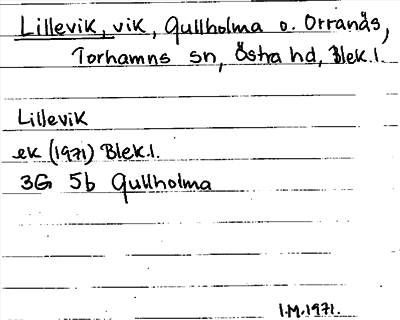 Lillevik, vik, Gullholma o. Orranäs,
Torhamns sn, Östra hd, Blek.l.
Lillevik
ek (1971) Blek.l.
3G 5b Gullholma
I.M.1971.